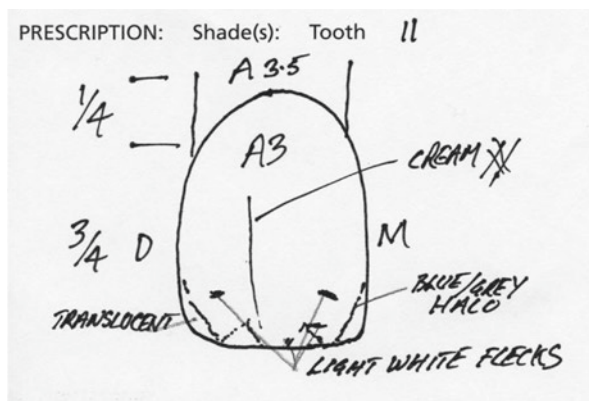 PRESCRIPTION: Shade(s): Tooth 11
A 3.5
1/4
A3
CREAM
3/4 D M
BLUE/GREY
HALO
TRANSLUCENT
LIGHT WHITE FLECKS